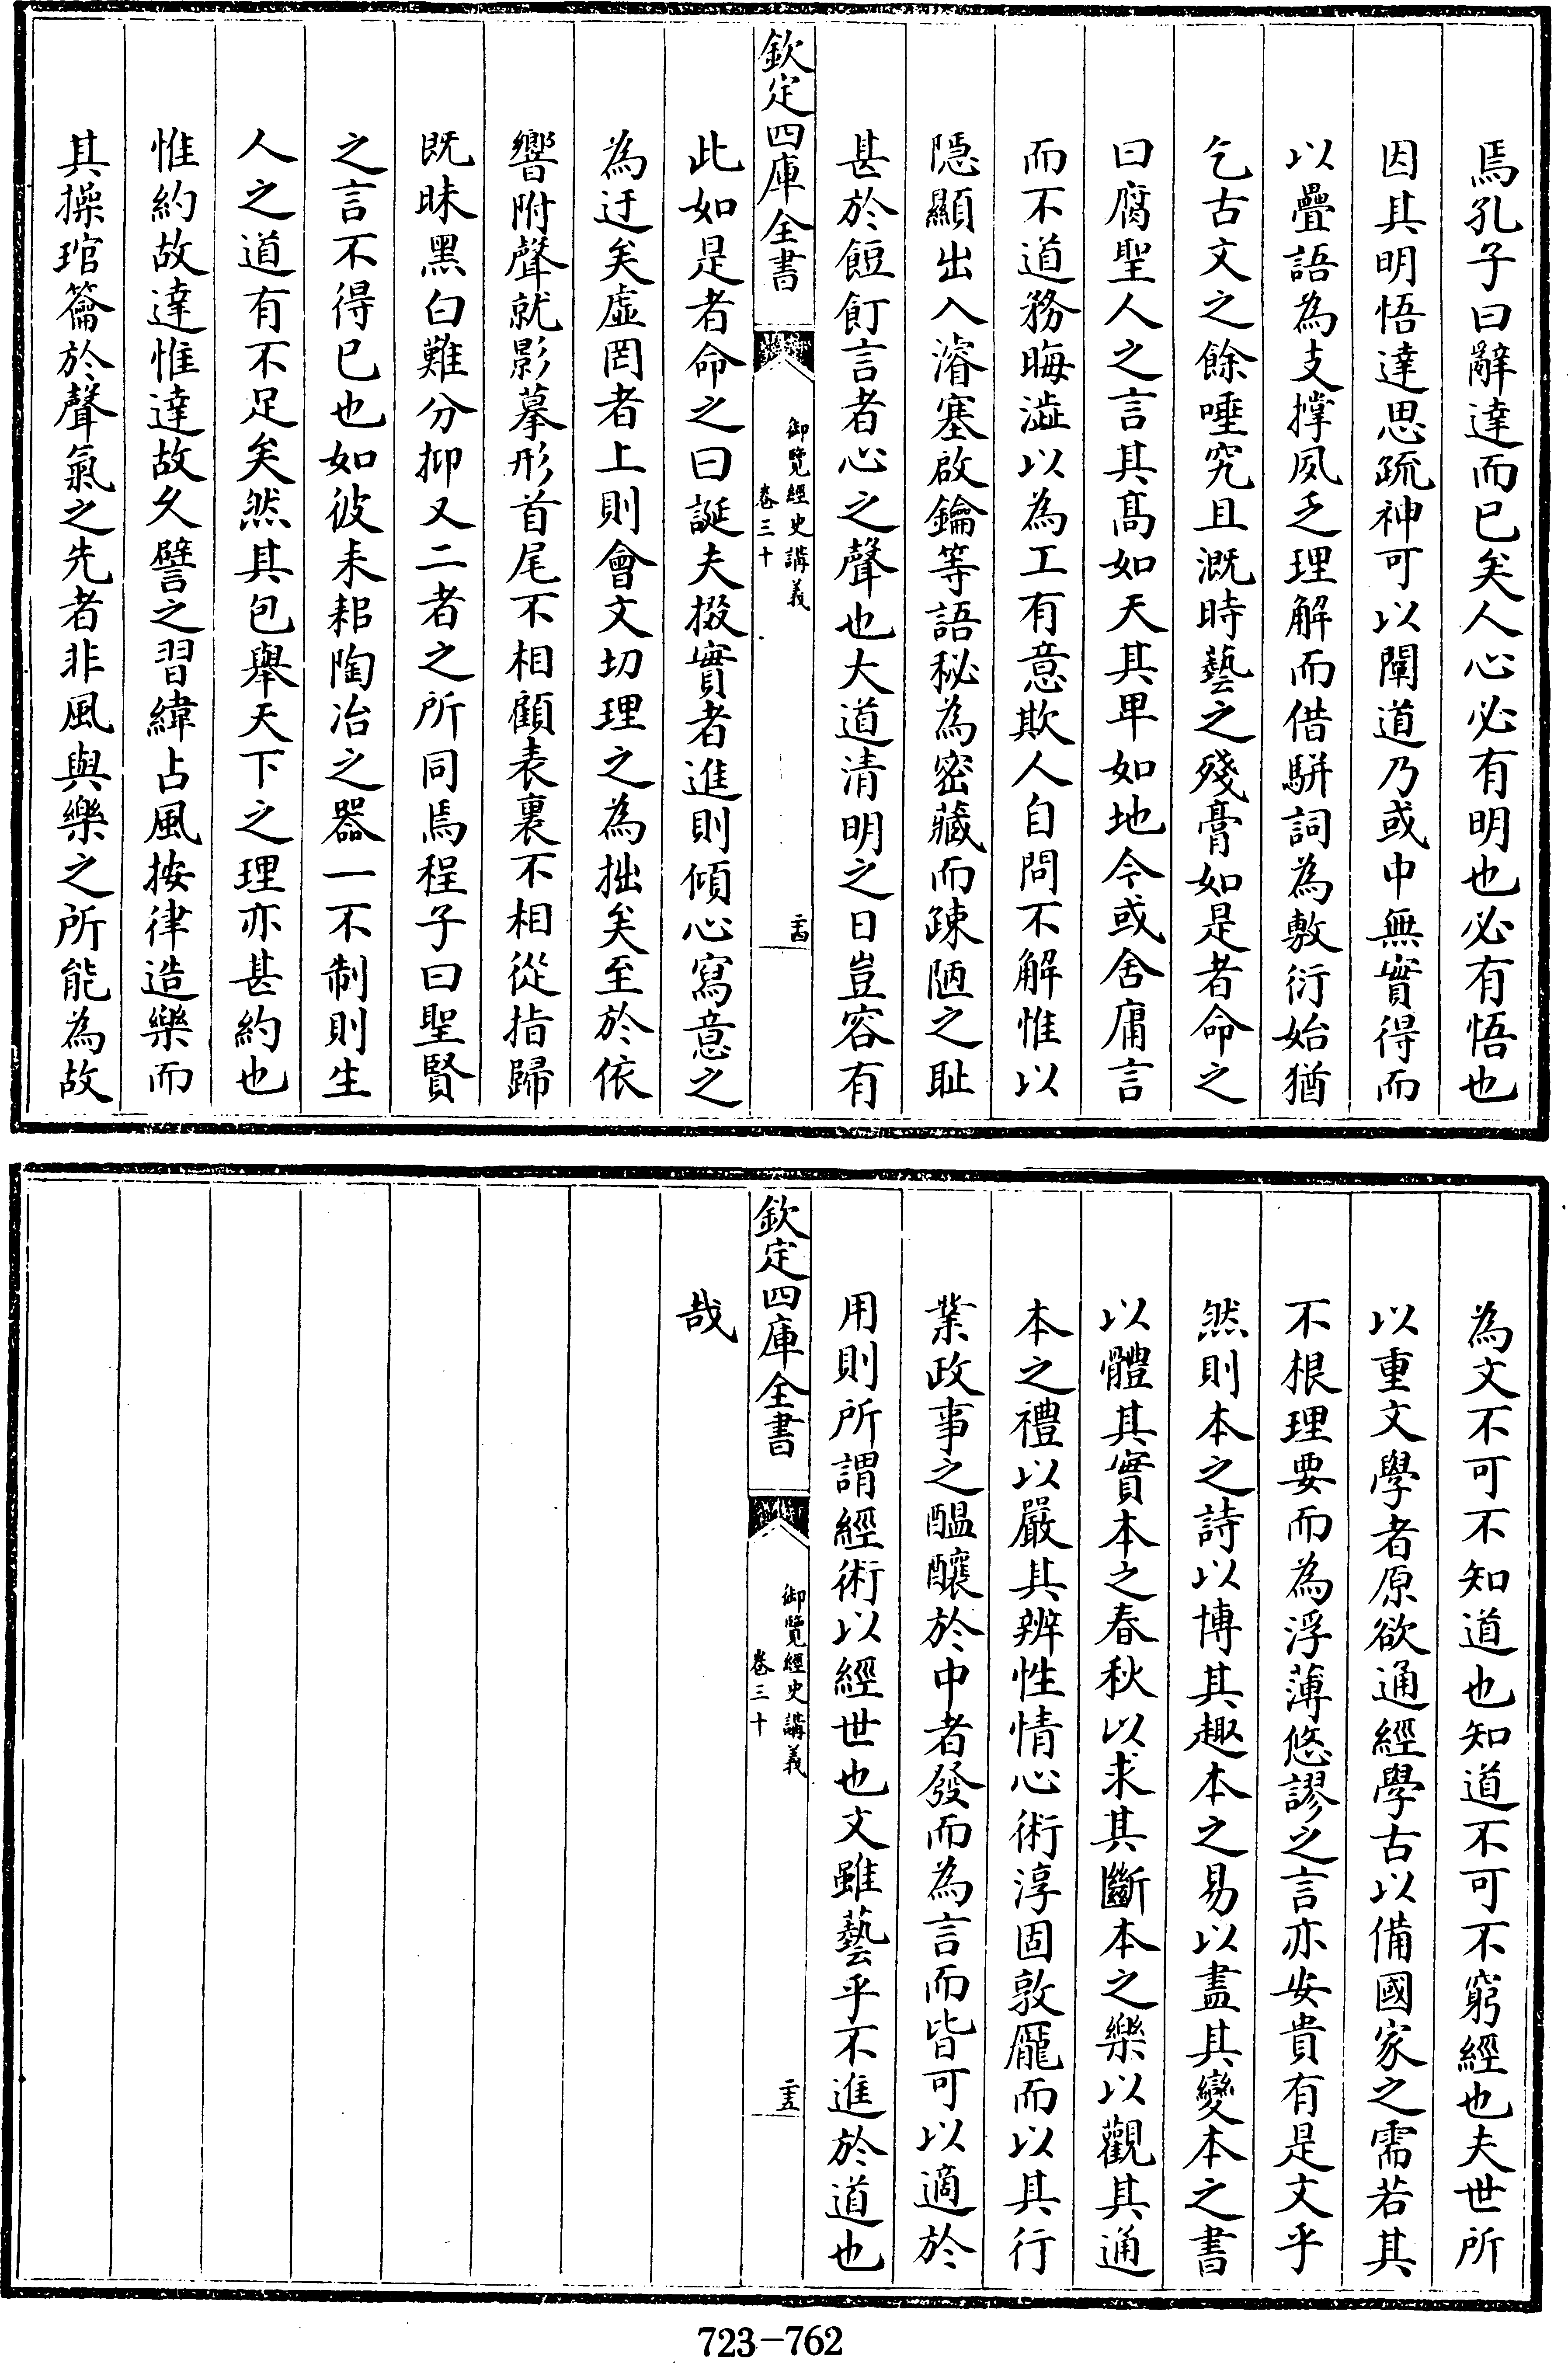 焉孔子曰辭達而已矣人心必有明也必有悟也
因其明悟達思疏神可以闡道乃或中無實得而
以疊語為支撑夙乏理解而借駢詞為敷衍始猶
乞古文之餘唾究且溉時藝之殘膏如是者命之
曰腐聖人之言其髙如天其卑如地今或舍庸言
而不道務晦澁以為工有意欺人自問不解惟以
隱顯出入濬塞啟鑰等語秘為密藏而踈陋之耻
甚於餖飣言者心之聲也大道清明之日豈容有
欽定四庫全書
御覽經史講義
卷三十
二十四
此如是者命之曰誕夫掇實者進則傾心寫意之
為迂矣虛罔者上則會文切理之為拙矣至於依
響附聲就影摹形首尾不相顧表裏不相從指歸
既昧黑白難分抑又二者之所同焉程子曰聖賢
之言不得已也如彼耒耜陶冶之器一不制則生
人之道有不足矣然其包舉天下之理亦甚約也
惟約故達惟達故久譬之習緯占風按律造樂而
其操琯籥於聲氣之先者非風與樂之所能為故
為文不可不知道也知道不可不窮經也夫世所
以重文學者原欲通經學古以備國家之需若其
不根理要而為浮薄悠謬之言亦安貴有是文乎
然則本之詩以博其趣本之易以盡其變本之書
以體其實本之春秋以求其斷本之樂以觀其通
本之禮以嚴其辨性情心術淳固敦龎而以其行
業政事之醖釀於中者發而為言而皆可以適於
用則所謂經術以經世也文雖藝乎不進於道也
欽定四庫全書
御覽經史講義
卷三十
二十五
哉
723-762